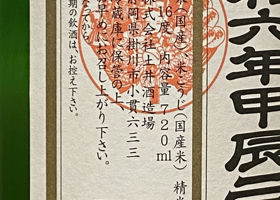 六年甲辰二
米(国産)、米こうじ(国産米) 精米
16度 内容量720ml
株式会社土井酒造場
岡県掛川市小貫633
冷蔵庫に保管の上、
早めにお召し上がり下さい。
なってから
期の飲酒は、お控え下さい。